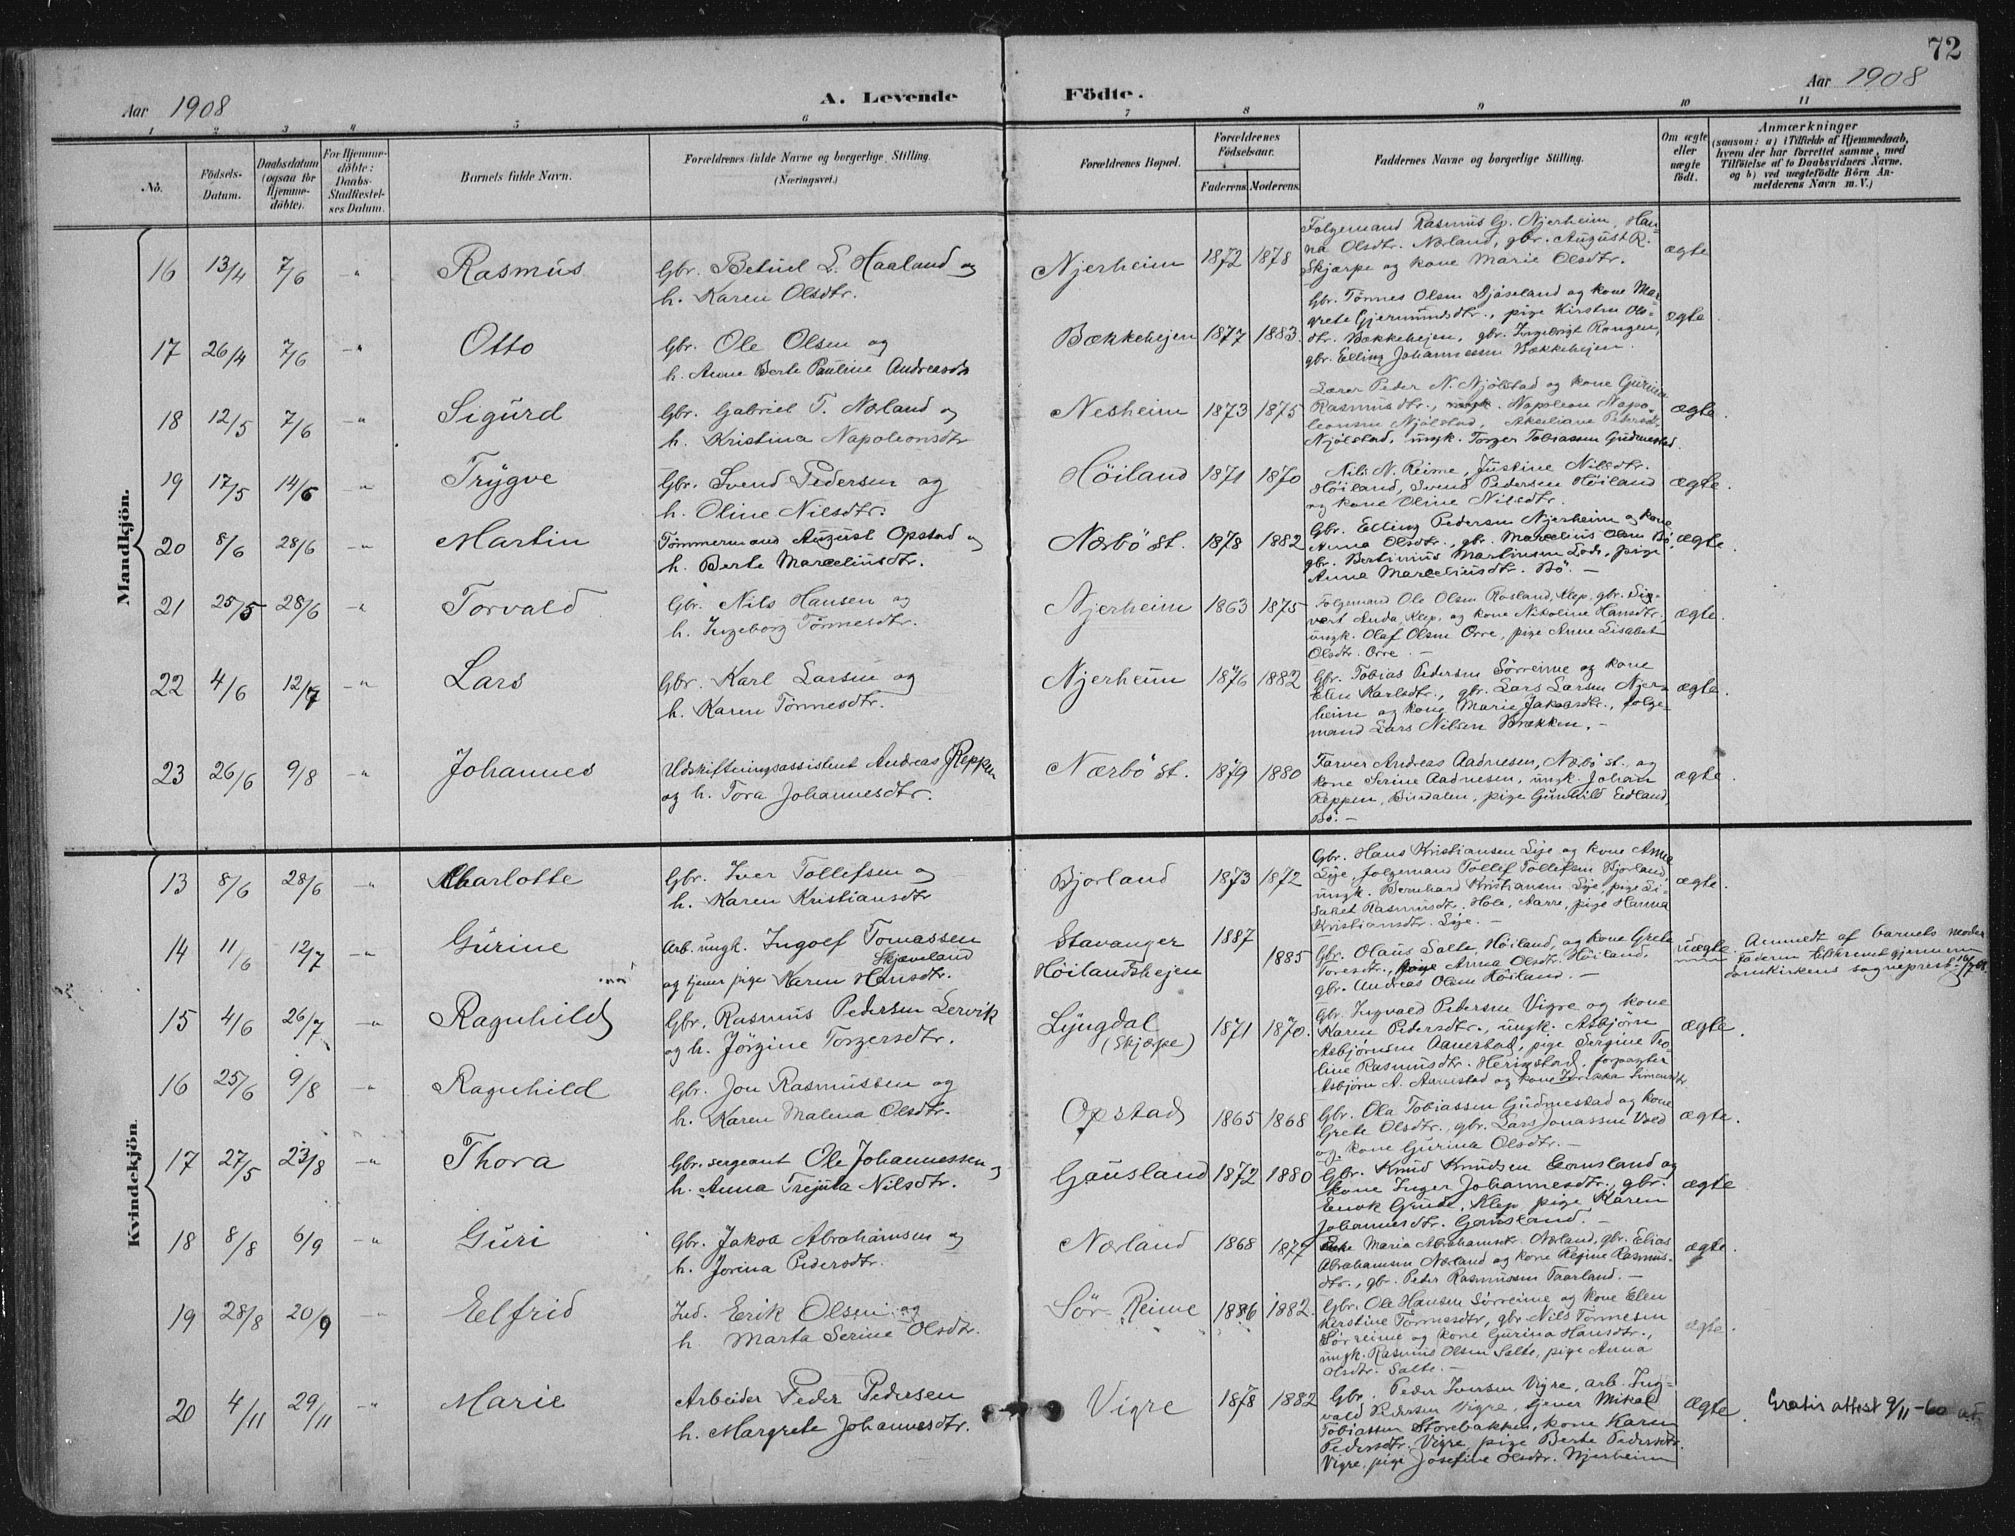 72
Aar 1908
A. Levende Födte.
Aar 1908
1 2 3 4 5 6 7 8 9 10 11
No.
Födsels-
Datum.
Daabsdatum
(ogsaa for
Hjemme-
döbte).
For Hjemme-
döbte:
Daabs-
Stadfæstel-
ses Datum.
Barnets fulde Navn.
Forældrenes fulde Navne og borgerlige Stilling.
(Næringsvei.)
Forældrenes Bopæl.
Forældrenes
Födselsaar.
Faderens. Moderens.
Faddernes Navne og borgerlige Stilling.
Om ægte
eller
uægte
födt.
Anmærkninger
(saasom: a) i Tilfælde af Hjemmedaab,
hvem der har forrettet samme, med
Tilföielse af to Daabsvidners Navne.
og b) ved uægtefödte Börn An-
melderens Navn m. V.)
Mandkjön.
16 13/4 7/6 -"- Rasmus
Gbr. Betuel L. Haaland og
h. Karen Olsdtr.
Njerheim 1872 1878
Folgemand Rasmus G. Njerheim, Han-
na Olsdtr. Norland, gbr. August R.
Skjærpe og kone Marie Olsdtr.
ægte
17 26/4 7/6 -"- Otto
Gbr. Ole Olsen og
h. Anne Berte Pauline Andreasdtr
Bækkehejen 1877 1883.
Gbr. Tönnes Olsen Djöseland og kone Mar-
grete Gjermundsdtr., pige Kirsten Ols-
dtr. Bækkehejen, gbr. Ingebrigt Rongen,
gbr. Elling Johannessen Bækkehejen.
ægte
18 12/5 7/6 -"- Sigurd
Gbr. Gabriel T. Norland og
h. Kristina Napoleonsdtr
Nesheim 1873 1875
Lærer Peder N. Njölstad og kone Gurina
Rasmusdtr., ungk. Napoleon Napo-
leonsen Njölstad, Akseliane Pedersdtr.
Njölstad, ungk. Torger Tobiassen Gudmestad.
ægte
19 17/5 14/6 -"- Trygve
Gbr. Svend Pedersen og
h. Oline Nilsdtr.
Höiland 1871 1870
Nils N. Reime, Justine Nilsdtr.
Höiland, Svend Pedersen Höiland
og kone Oline Nilsdtr.
ægte.
20 8/6 28/6 -"- Martin
Tömmermand August Opstad og
h. Berte Marceliusdtr.
Nærbö st. 1878 1882
Gbr. Elling Pedersen Njerheim og kone
Anna Olsdtr., gbr. Marcelius Olsen Bö,
gbr. Bertinius Martinsen Lode, pige
Anna Marceliusdtr. Bö. –
ægte.
21 25/5 28/6 -"- Torvald
Gbr. Nils Hansen og
h. Ingeborg Tönnesdtr.
Njerheim 1863 1875
Folgemand Ole Olsen Rosland, Klep, gbr. Sig-
vert Anda, Klep, og kone Nikoline Hansdtr.,
ungk. Olaf Olsen Orre, pige Anne Lisabet
Olsdtr. Orre. –
ægte.
22 4/6 12/7 -"- Lars
Gbr. Karl Larsen og
h. Karen Tönnesdtr.
Njerheim 1876 1882
Gbr. Tobias Pedersen Sörreime og kone
Elen Karlsdtr., gbr. Lars Larsen Njer-
heim og kone Marie Jakobsdtr., folge-
mand Lars Nilsen Brækken. –
ægte.
23 26/6 9/8 -"- Johannes
Udskiftningsassistent Andreas J Reppen
og h. Tora Johannesdtr.
Nærbö st. 1879 1880
Farver Andreas Aadnesen, Nærbö st., og
kone Serine Aadnesen, ungk. Johan
Reppen, Bindalen, pige Gunhild Eedland,
Bö. –
ægte.
Kvindekjön.
13 8/6 28/6 -"- Charlotte
Gbr. Iver Tollefsen og
h. Karen Kristiansdtr
Bjorland 1873 1872
Gbr. Hans Kristiansen Lye og kone Anna
Lye, folgemand Tollef Tollefsen Bjorland,
ungk. Bernhard Kristiansen Lye, pige Li-
sabet Rasmusdtr. Hole, Aarre, pige Hanna
Kristiansdtr. Lye. –
ægte.
14 11/6 12/7 -"- Gurine
Arb. ungk. Ingolf Tomassen
Skjæveland
og tjener pige Karen Hansdtr.
Stavanger
Höilandshejen
1887 1885
Gbr. Olaus Salte, Höiland, og kone Grete
Toresdtr., pige Anna Olsdtr. Höiland,
gbr. Andreas Olsen Höiland. –
uægte
Anmeldt af barnets moder
faderen tilkrevet gjennem
domkirkens sogneprest
15 4/6 26/7 -"- Ragnhild
Gbr. Rasmus Pedersen Lervik
og h. Jörgine Torgersdtr.
Lyngdal
(Skjærpe)
1871 1870.
Gbr. Ingvald Pedersen Vigre og kone
Karen Pedersdtr., ungk. Asbjörn
Asbjörnsen Aanestad, pige Sergine To-
line Rasmusdtr. Herigstad, forpagter
Asbjörn A. Aanestad og kone Simonsdtr
ægte.
16 25/6 9/8 -"- Ragnhild
Gbr. Jon Rasmussen og
h. Karen Malena Olsdtr.
Opstad 1865 1868
Gbr. Ola Tobiassen Gudmestad og kone
Grete Olsdtr., gbr. Lars Jonassen Vold
og kone Gurina Olsdtr. –
ægte.
17 27/5 23/8 -"- Thora
Gbr. sergeant Ole Johannessen og
h. Anna Trejuta Nilsdtr.
Gausland 1872 1880
Gbr. Knud Knudsen Eomsland og
kone Inger Johannesdtr., gbr.
Enok Grude, Klep, pige Karen
Johannesdtr. Gausland. –
ægte
18 8/8 6/9 -"- Guri
Gbr. Jakob Abrahamsen og
h. Jorina Pedersdtr.
Norland 1868 1877
Enke Maria Abrahamsdtr. Norland, gbr. Elias
Abrahamsen Norland og kone Regine Rasmus-
dtr., gbr. Peder Rasmussen Taarland. –
ægte.
19 28/8 20/9 -"- Eelfrid
Ind. Eerik Olsen og
h. Marta Serine Olsdtr.
Sör-Reime 1886 1882.
Gbr. Ole Hansen Sörreime og kone Elen
Kirstine Tönnesdtr., gbr. Nils Tönnesen
Sörreime og kone Gurina Hansdtr.,
ungk. Rasmus Olsen Salte, pige Anna
Olsdtr. Salte. –
ægte.
20 4/11 29/11 -"- Marie
Arbeider Peder Pedersen
h. Margrete Johannesdtr.
Vigre 1878 1882
Gbr. Peder Iversen Vigre, arb. Ing-
vald Pedersen Vigre, tjener Mikal
Tobiassen Storebakken, kone Karen
Pedersdtr. Vigre, pige Berte Pedersdtr.
Vigre, pige Josefine Olsdtr. Njerheim
ægte.
Gratis attest 9/11-60